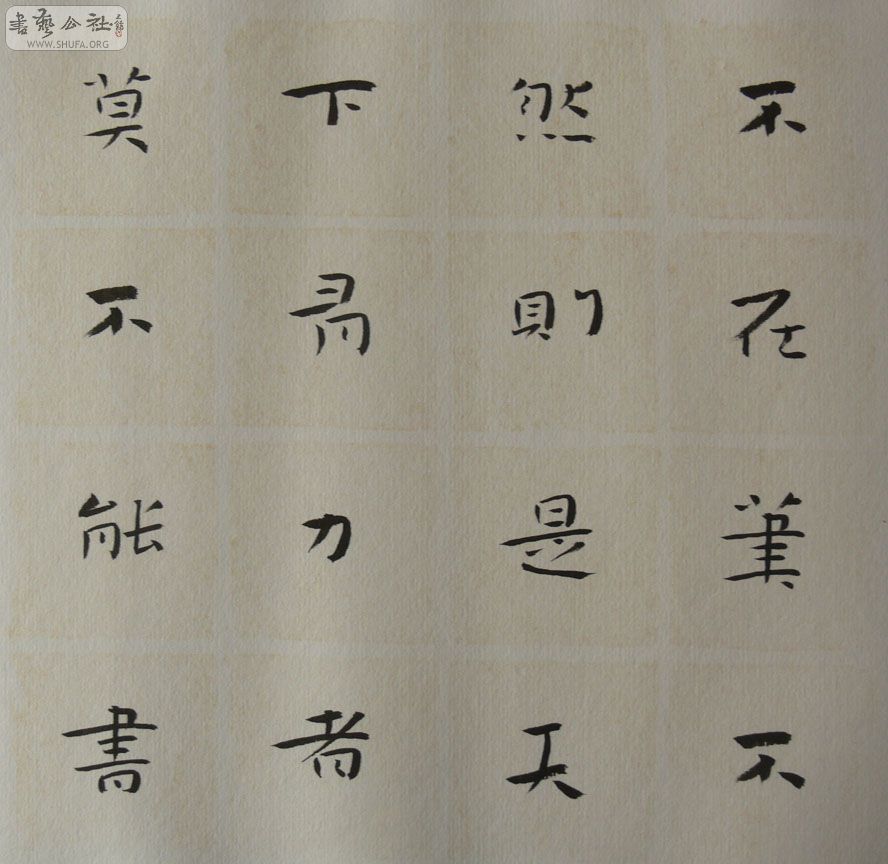 書藝公社
WWW.SHUFA.ORG
不在筆不
然則是天
下有力者
莫不能書